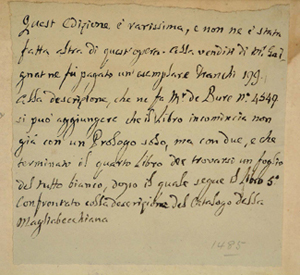 Quest Edizione è rarissima, e non ne è stata
fatta altra di quest'opera. Alla vendita di Mr. Gaignat
ne fù pagato un esemplare franchi 199.
Alla descrizione, che ne fa Mr. de Bure Nº. 4549.
si può aggiungere che il Libro incomincia non
già con un Prologo solo, ma con due, e che
terminato il quarto Libro dee trovarsi un foglio
del tutto bianco, dopo il quale segue il Libro 5º
Confrontato colla descrizione del Catalogo della
Magliabechiana
1485